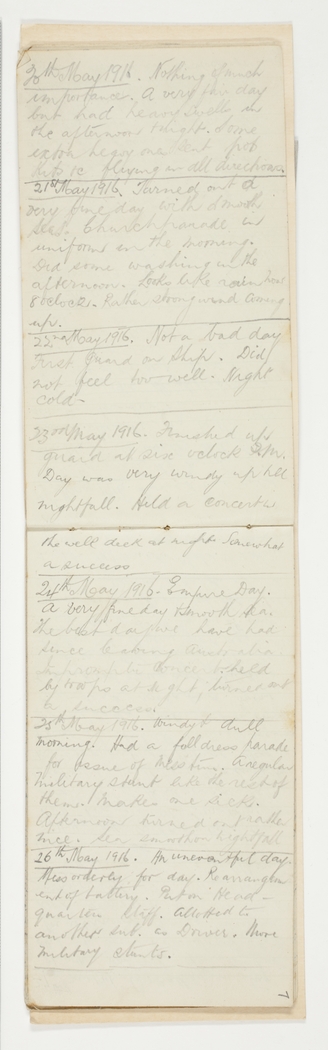 20th May 1916. Nothing of much
importance. A very fine day
but had heavy swells in
the afternoon & night. Some
extra heavy ones sent pots
flying in all directions.
21st May 1916. Turned out a
very fine day with smooth
sea. Church parade in
uniform in the morning.
Did some washing in the
afternoon. Looks like rain near
8 oclock. Rather strong wind coming
up.
22nd May 1916. Not a bad day
First guard on ship. Did
not feel too well. Night
cold.
23rd May 1916. Finished up
guard at six oclock P.M.
Day was very windy up till
nightfall. Held a concert in
the well deck at night. Somewhat
a success
24th May 1916. Empire Day.
A very fine day & smooth sea.
The best day we have had
since leaving Australia.
Impromptu concert held
by troops at night, turned out
a success.
25th May 1916. Windy & dull
morning. Had a full dress parade
for issue of A regular
military stunt like the rest of
them. Makes one sick.
Afternoon turned out rather
nice. Sea smooth nightfall
26th May 1916. An uneventful day.
Mess orderly for day. Rearrangem
ent of battery. Put on Head-
quarters Staff. Allotted to
another sub. as Driver. More
military stunts.
7